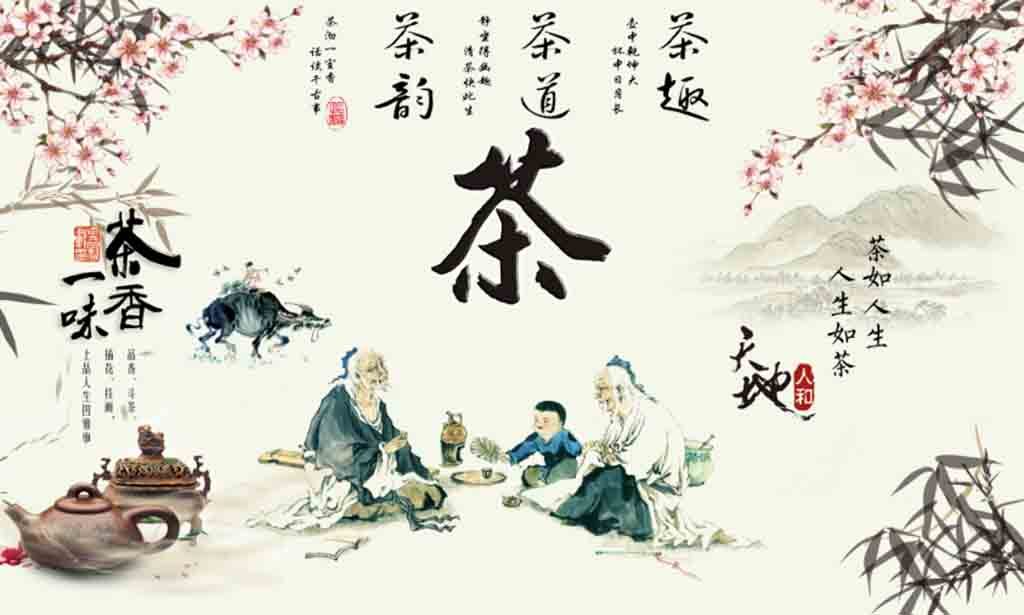 茶趣
壶中乾坤大
杯中日月长
茶道
静坐得幽趣
清茶快此生
茶韵
茶沏一室香
话谈千古事
茶
茶香
一味
品香、斗茶、
插花、挂画、
上品人生四雅事
茶如人生
人生如茶
天地
人和